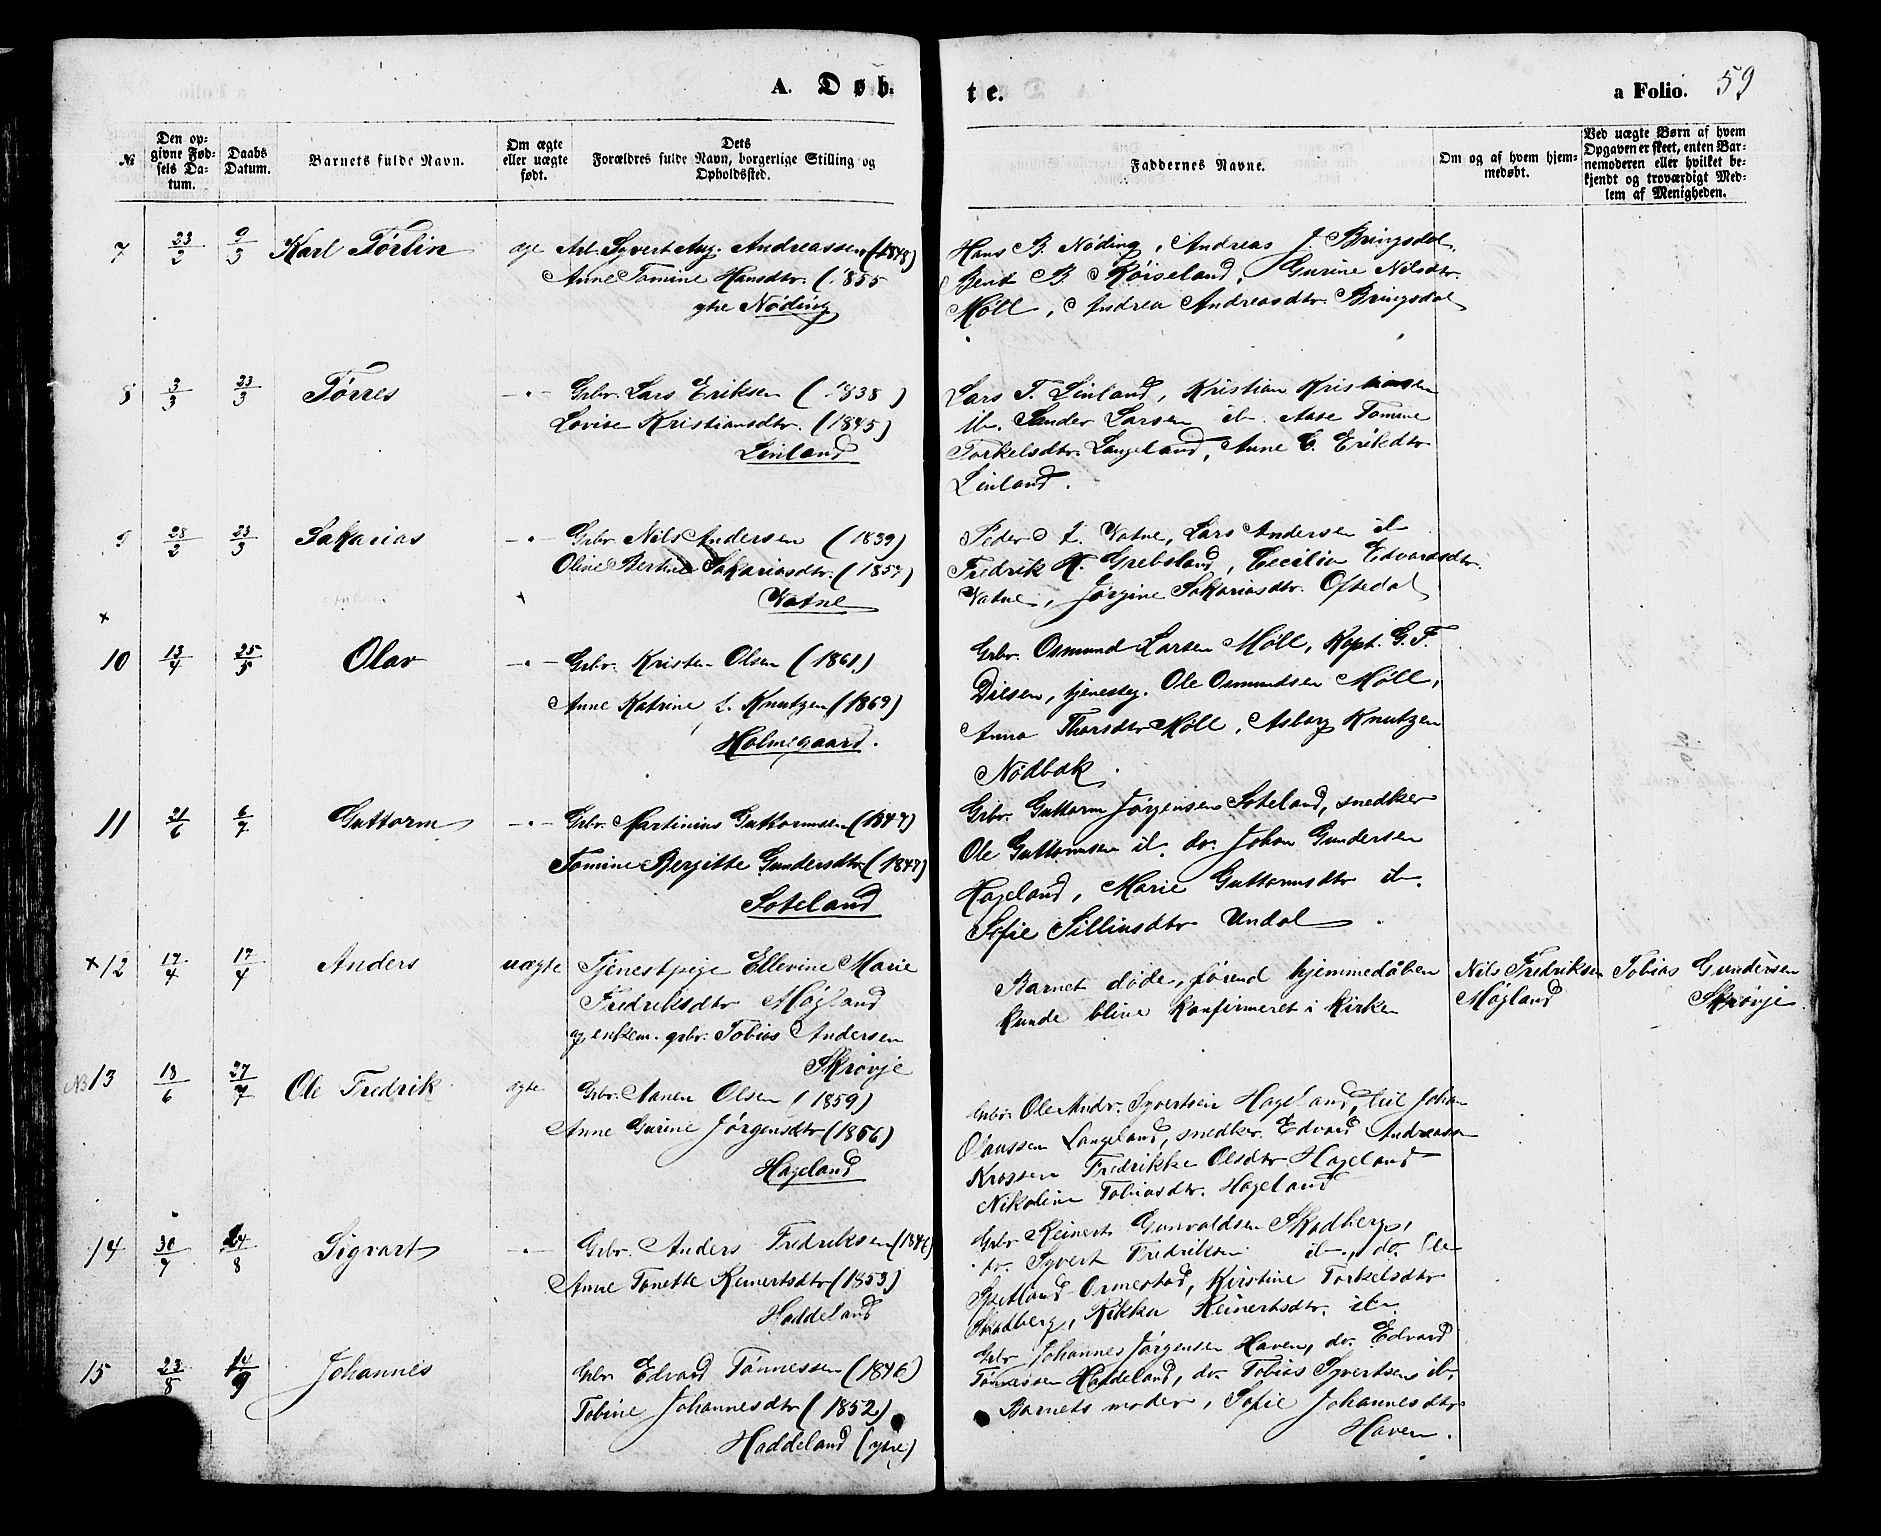 A. Døb-
te.
a Folio. 59
№
Den op-
givne Fød-
sels Da-
tum.
Daabs
Datum.
Barnets fulde Navn.
Om ægte
eller uægte
født.
Dets
Forældres fulde Navn, borgerlige Stilling og
Opholdssted.
Faddernes Navne.
Om og af hvem hjem-
medøbt.
Ved uægte Børn af hvem
Opgaven er skeet, enten Bar-
nemoderen eller hvilket be-
kjendt og troværdigt Med-
lem af Menigheden.
7 23/2 9/3 Karl Tørlin ægte Arb. Syvert Aug. Andreassen (1848)
Anne Tomine Hansdtr. (1855
ytre Nøding
Hans B. Nøding, Andreas J. Bringsdal,
Bent B. Røiseland, Gurine Nilsdtr.
Møll, Andrea Andreasdtr. Bringsdal
8 3/3 23/3 Tørres —"— Grbr. Lars Eriksen (1838)
Lovise Kristiansdtr. (1845)
Linland
Lars T. Linland, Kristian Kristiansen
ib. Sander Larsen ib. Aase Tomine
Torkelsdtr. Langeland, Anne C. Eriksdtr
Linland.
9 28/2 23/3 Sakarias —"— Grbr. Nils Andersen (1839)
Oline Bertine Sakariasdtr. (1857)
Vatne
Peder L. Vatne, Lars Andersen ib
Fredrik K. Grebsland, Cecilia Edvardsdtr.
Vatne, Jørgine Sakariasdtr. Oftedal
x
10 13/4 25/5 Olav —"— Grbr. Kristen Olsen (1861)
Anne Katrine L. Knutzen (1869)
Holmegaard.
Grbr. Osmund Larsen Møll, Kapt. G. F.
Dilsen, tjenestg. Ole Osmundsen Møll,
Anna Thorsdtr Møll, Asborg Knutzen
Nødbak.
11 21/6 6/7 Guttorm —"— Grbr. Martinius Guttormsen (1847)
Tomine Bergitte Gundersdtr. (1847)
Soteland
Grbr. Guttorm Jørgensen Soteland, snedker
Ole Guttormsen ib. do. Johan Gundersen
Hageland, Marie Guttormsdtr ib.
Sofie Silliusdtr Undal
x 12 17/4 17/4 Anders uægte Tjenestpige Ellevine Marie
Fredriksdtr Møgland
og enkem. grbr. Tobias Andersen
Skrøvje
Barnet døde, førend hjemmedåben
kunde blive konfirmeret i kirken
Nils Fredriksen
Møgland
Tobias Gundersen
Skrøvje
NB 13 18/6 27/7 Ole Fredrik ægte Grbr. Aanen Olsen (1859)
Anne Gurine Jørgensdtr (1866)
Hageland
Grbr. Ole Andr. Syvertsen Hageland, Johan
Olaussen Langeland, snedker. Edvard Andreasen
Krossen Fredrikke Olsdtr Hageland
Nikoline Tobiasdtr. Hageland
14 30/7 24/8 Sigvart —"— Grbr. Anders Fredriksen (1846)
Anne Tonette Reinertsdtr (1853)
Haddeland
Grbr Reinert Gunvaldsen Skadberg,
do. Syvert Fredriksen ib., do. Ole
Spetland Ormestad, Kirstine Torkelsdtr
Skadberg, Rikka Reinertsdtr. ib
15 23/8 14/9 Johannes Grbr Edvard Tønnessen (1846)
Tobine Johannesdtr (1852)
Haddeland (ytre)
Grbr Johannes Jørgensen Haven, do. Edvard
Tønnessen Haddeland, do. Tobias Syvertsen ib,
Barnets moder, Sofie Johannesdtr
Haven.